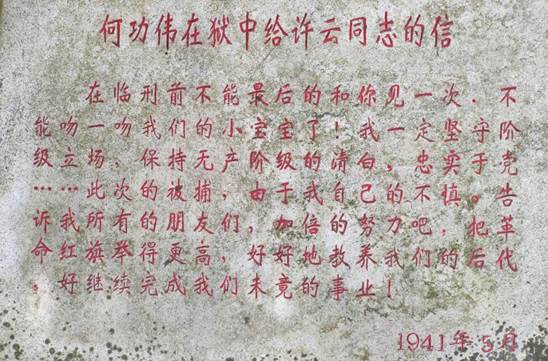 何功伟在狱中给许云同志的信
在临刑前不能最后的和你见一次，不
能吻一吻我们的小宝宝了！我一定坚守阶
级立场，保持无产阶级的清白，忠实于党
……此次的被捕，由于我自己的不慎。告
诉我所有的朋友们，加倍的努力吧，把革
命红旗举得更高，好好地教养我们的后代
。好继续完成我们未竟的事业！
1941年5月